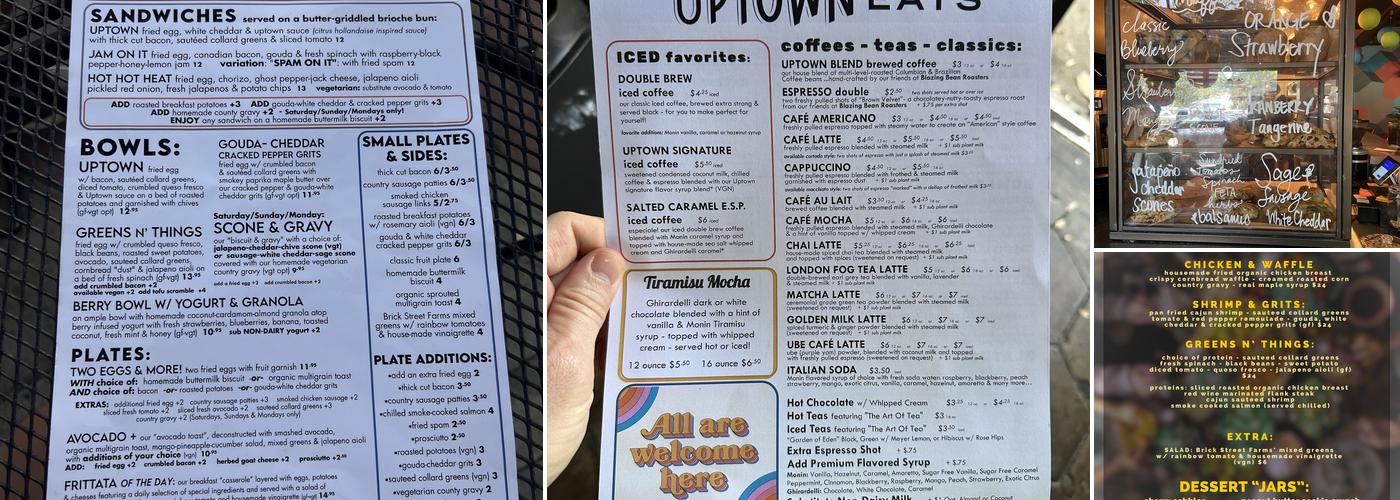 SANDWICHES served on a butter-griddled brioche bun:
UPTOWN fried egg, white cheddar & uptown sauce (citrus hollandaise inspired sauce)
with thick cut bacon, sautéed collard greens & sliced tomato 12
JAM ON IT fried egg, canadian bacon, gouda & fresh spinach with raspberry-black
pepper-honey-lemon jam 12 variation: "SPAM ON IT": with fried spam 12
HOT HOT HEAT fried egg, chorizo, ghost pepper-jack cheese, jalapeno aioli
pickled red onion, fresh jalapenos & potato chips 13 vegetarian: substitute avocado & tomato
ADD roasted breakfast potatoes +3 ADD gouda-white cheddar & cracked pepper grits +3
ADD homemade country gravy +2 - Saturday/Sunday/Mondays only!
ENJOY any sandwich on a homemade buttermilk biscuit +2
BOWLS:
UPTOWN fried egg
w/ bacon, sautéed collard greens,
diced tomato, crumbled queso fresco
& Uptown sauce on a bed of roasted
potatoes and garnished with chives
(gf-vgt option) 12.95
GREENS N' THINGS
fried egg w/ crumbled queso fresco,
black beans, roasted sweet potatoes,
avocado, sautéed collard greens,
cornbread "dust" & jalapeno aioli on
a bed of fresh spinach (gf-vgt) 13.95
add crumbled bacon +2
available vegan +2 add tofu scramble +4
GOUDA- CHEDDAR
CRACKED PEPPER GRITS
fried egg w/ crumbled bacon
& sautéed collard greens with
smoky paprika maple butter over
our cracked pepper & gouda-white
cheddar grits (gf-vgt option) 11.95
Saturday/Sunday/Monday:
SCONE & GRAVY
our "biscuit & gravy" with a choice of:
jalapeno-cheddar-chive scone (vgt)
or sausage-white cheddar-sage scone
covered with our homemade vegetarian
country gravy (vgt option) 9.95
add a fried egg +2 add crumbled bacon +2
BERRY BOWL W/ YOGURT & GRANOLA
an ample bowl with homemade coconut-cardamom-almond granola atop
berry infused yogurt with fresh strawberries, blueberries, banana, toasted
coconut, fresh mint & honey (gf-vgt) 10.95 sub NON-DAIRY yogurt +2
PLATES:
TWO EGGS & MORE! two fried eggs with fruit garnish 11.95
WITH choice of: homemade buttermilk biscuit -or- organic multigrain toast
AND choice of: bacon -or- roasted potatoes -or- gouda-white cheddar grits
EXTRAS: additional fried egg +2 country sausage patties +3 smoked chicken sausage +2
sliced fresh tomato +2 sliced fresh avocado +2 sautéed collard greens +3
country gravy +2 (Saturdays, Sundays & Mondays only)
AVOCADO + our "avocado toast", deconstructed with smashed avocado,
organic multigrain toast, mango-pineapple-cucumber salad, mixed greens & jalapeno aioli
with additions of your choice (vgn) 10.95
ADD: fried egg +2 crumbled bacon +2 herbed goat cheese +2 prosciutto +2.50
FRITTATA OF THE DAY: our breakfast "casserole" layered with eggs, potatoes
& cheeses featuring a daily selection of special ingredients and served with a salad of
SMALL PLATES
& SIDES:
thick cut bacon 6/3.50
country sausage patties 6/3.50
smoked chicken
sausage links 5/2.75
roasted breakfast potatoes
w/ rosemary aioli (vgn) 6/3
gouda & white cheddar
cracked pepper grits 6/3
classic fruit plate 6
homemade buttermilk
biscuit 4
organic sprouted
multigrain toast 4
Brick Street Farms mixed
greens w/ rainbow tomatoes
& house-made vinaigrette 4
PLATE ADDITIONS:
•add an extra fried egg 2
•thick cut bacon 3.50
•country sausage patties 3.50
•chilled smoked-cooked salmon 4
•fried spam 2.50
•prosciutto 2.50
•roasted potatoes (vgn) 3
•gouda-cheddar grits 3
•sautéed collard greens (vgn) 3
•vegetarian country gravy 2
UPTOWN EATS
ICED favorites:
DOUBLE BREW
iced coffee $4.25 iced
our classic iced coffee, brewed extra strong &
served black - for you to make perfect for
yourself!
favorite additions: Monin vanilla, caramel or hazelnut syrup
UPTOWN SIGNATURE
iced coffee $5.50 iced
sweetened condensed coconut milk, chilled
coffee & espresso blended with our Uptown
signature flavor syrup blend* (VGN)
SALTED CARAMEL E.S.P.
iced coffee $6 iced
especial! our iced double brew coffee
blended with Monin caramel syrup and
topped with house-made sea salt whipped
cream and Ghirardelli caramel*
Tiramisu Mocha
Ghirardelli dark or white
chocolate blended with a hint of
vanilla & Monin Tiramisu
syrup - topped with whipped
cream - served hot or iced!
12 ounce $5.50 16 ounce $6.50
All are
welcome
here
coffees - teas - classics:
UPTOWN BLEND brewed coffee $3 12 oz or $4 16 oz
our house blend of multi-level-roasted Columbian & Brazilian
Coffee beans ...hand-crafted by our friends at Blazing Bean Roasters
ESPRESSO double $2.50 two shots served hot or over ice
two freshly pulled shots of "Brown Velvet"- a chocolatey-nutty-toasty espresso roast
from our friends at Blazing Bean Roasters + $.75 per extra shot
CAFÉ AMERICANO
freshly pulled espresso topped with steamy water to create an "American" style coffee
CAFÉ LATTE
freshly pulled espresso blended with steamed milk + $1 sub plant milk
CAPPUCCINO
freshly pulled espresso blended with frothed & steamed milk
CAFÉ AU LAIT
brewed coffee blended with steamed milk + $1 sub plant milk
CAFÉ MOCHA $5 12 oz or $6 16 oz or $6 iced
freshly pulled espresso blended with steamed milk, Ghirardelli chocolate
& a hint of vanilla topped w/ whipped cream + $1 sub plant milk
CHAI LATTE $5.25 12 oz or $6.25 16 oz or $6.25 iced
house-made spiced chai tea blended with steamed milk
and topped with spices (sweetened on request) + $1 plant milk
LONDON FOG TEA LATTE $5 12 oz or $6 16 oz or $6 iced
double-brewed earl grey tea blended with vanilla, lavender
& steamed milk + $1 sub plant milk
MATCHA LATTE $6 12 oz or $7 16 oz or $7 iced
ceremonial grade green tea powder blended with steamed milk
(sweetened on request) + $1 plant milk
GOLDEN MILK LATTE $6 12 oz or $7 16 oz or $7 iced
spiced turmeric & ginger powder blended with steamed milk
(sweetened on request) + $1 plant milk
UBE CAFÉ LATTE $6 12 oz or $7 16 oz or $7 iced
ube (purple yam) powder, blended with coconut milk and topped
with freshly pulled espresso (sweetened on request) + $1 plant milk
ITALIAN SODA $3.50 iced
Monin flavored syrup of choice with fresh soda water: raspberry, blackberry, peach
strawberry, mango, exotic citrus, vanilla, caramel, hazelnut, amaretto & many more...
Hot Chocolate w/ Whipped Cream $3.25 12 oz or $4.25 16 oz
Hot Teas featuring "The Art Of Tea" $3 16 oz
Iced Teas featuring "The Art Of Tea" $3.50 iced
"Garden of Eden" Black, Green w/ Meyer Lemon, or Hibiscus w/ Rose Hips
Extra Espresso Shot + $.75
Add Premium Flavored Syrup + $.75
Monin: Vanilla, Hazelnut, Caramel, Amaretto, Sugar Free Vanilla, Sugar Free Caramel
Peppermint, Cinnamon, Blackberry, Raspberry, Mango, Peach, Strawberry, Exotic Citrus
Ghirardelli: Chocolate, White Chocolate, Caramel
classic
Blueberry
ORANGE
Strawberry
Mango
CRANBERRY
Tangerine
jalapeño
cheddar
scones
Sundried
Tomato
Spinach
Feta
herbs
balsamic
Sage
Sausage
White Cheddar
CHICKEN & WAFFLE
housemade fried organic chicken breast
crispy cornbread waffle - creamed roasted corn
country gravy - real maple syrup $24
SHRIMP & GRITS:
pan fried cajun shrimp - sauteed collard greens
tomato & red pepper remoulade - gouda, white
cheddar & cracked pepper grits (gf) $24
GREENS N' THINGS:
choice of protein - sauteed collard greens
fresh spinach - black beans - sweet potato
diced tomato - queso fresco - jalapeno aioli (gf)
$24
proteins: sliced roasted organic chicken breast
red wine marinated flank steak
cajun sauteed shrimp
smoke cooked salmon (served chilled)
EXTRA:
SALAD: Brick Street Farms' mixed greens
w/ rainbow tomato & housemade vinaigrette
(vgn) $6
DESSERT "JARS":